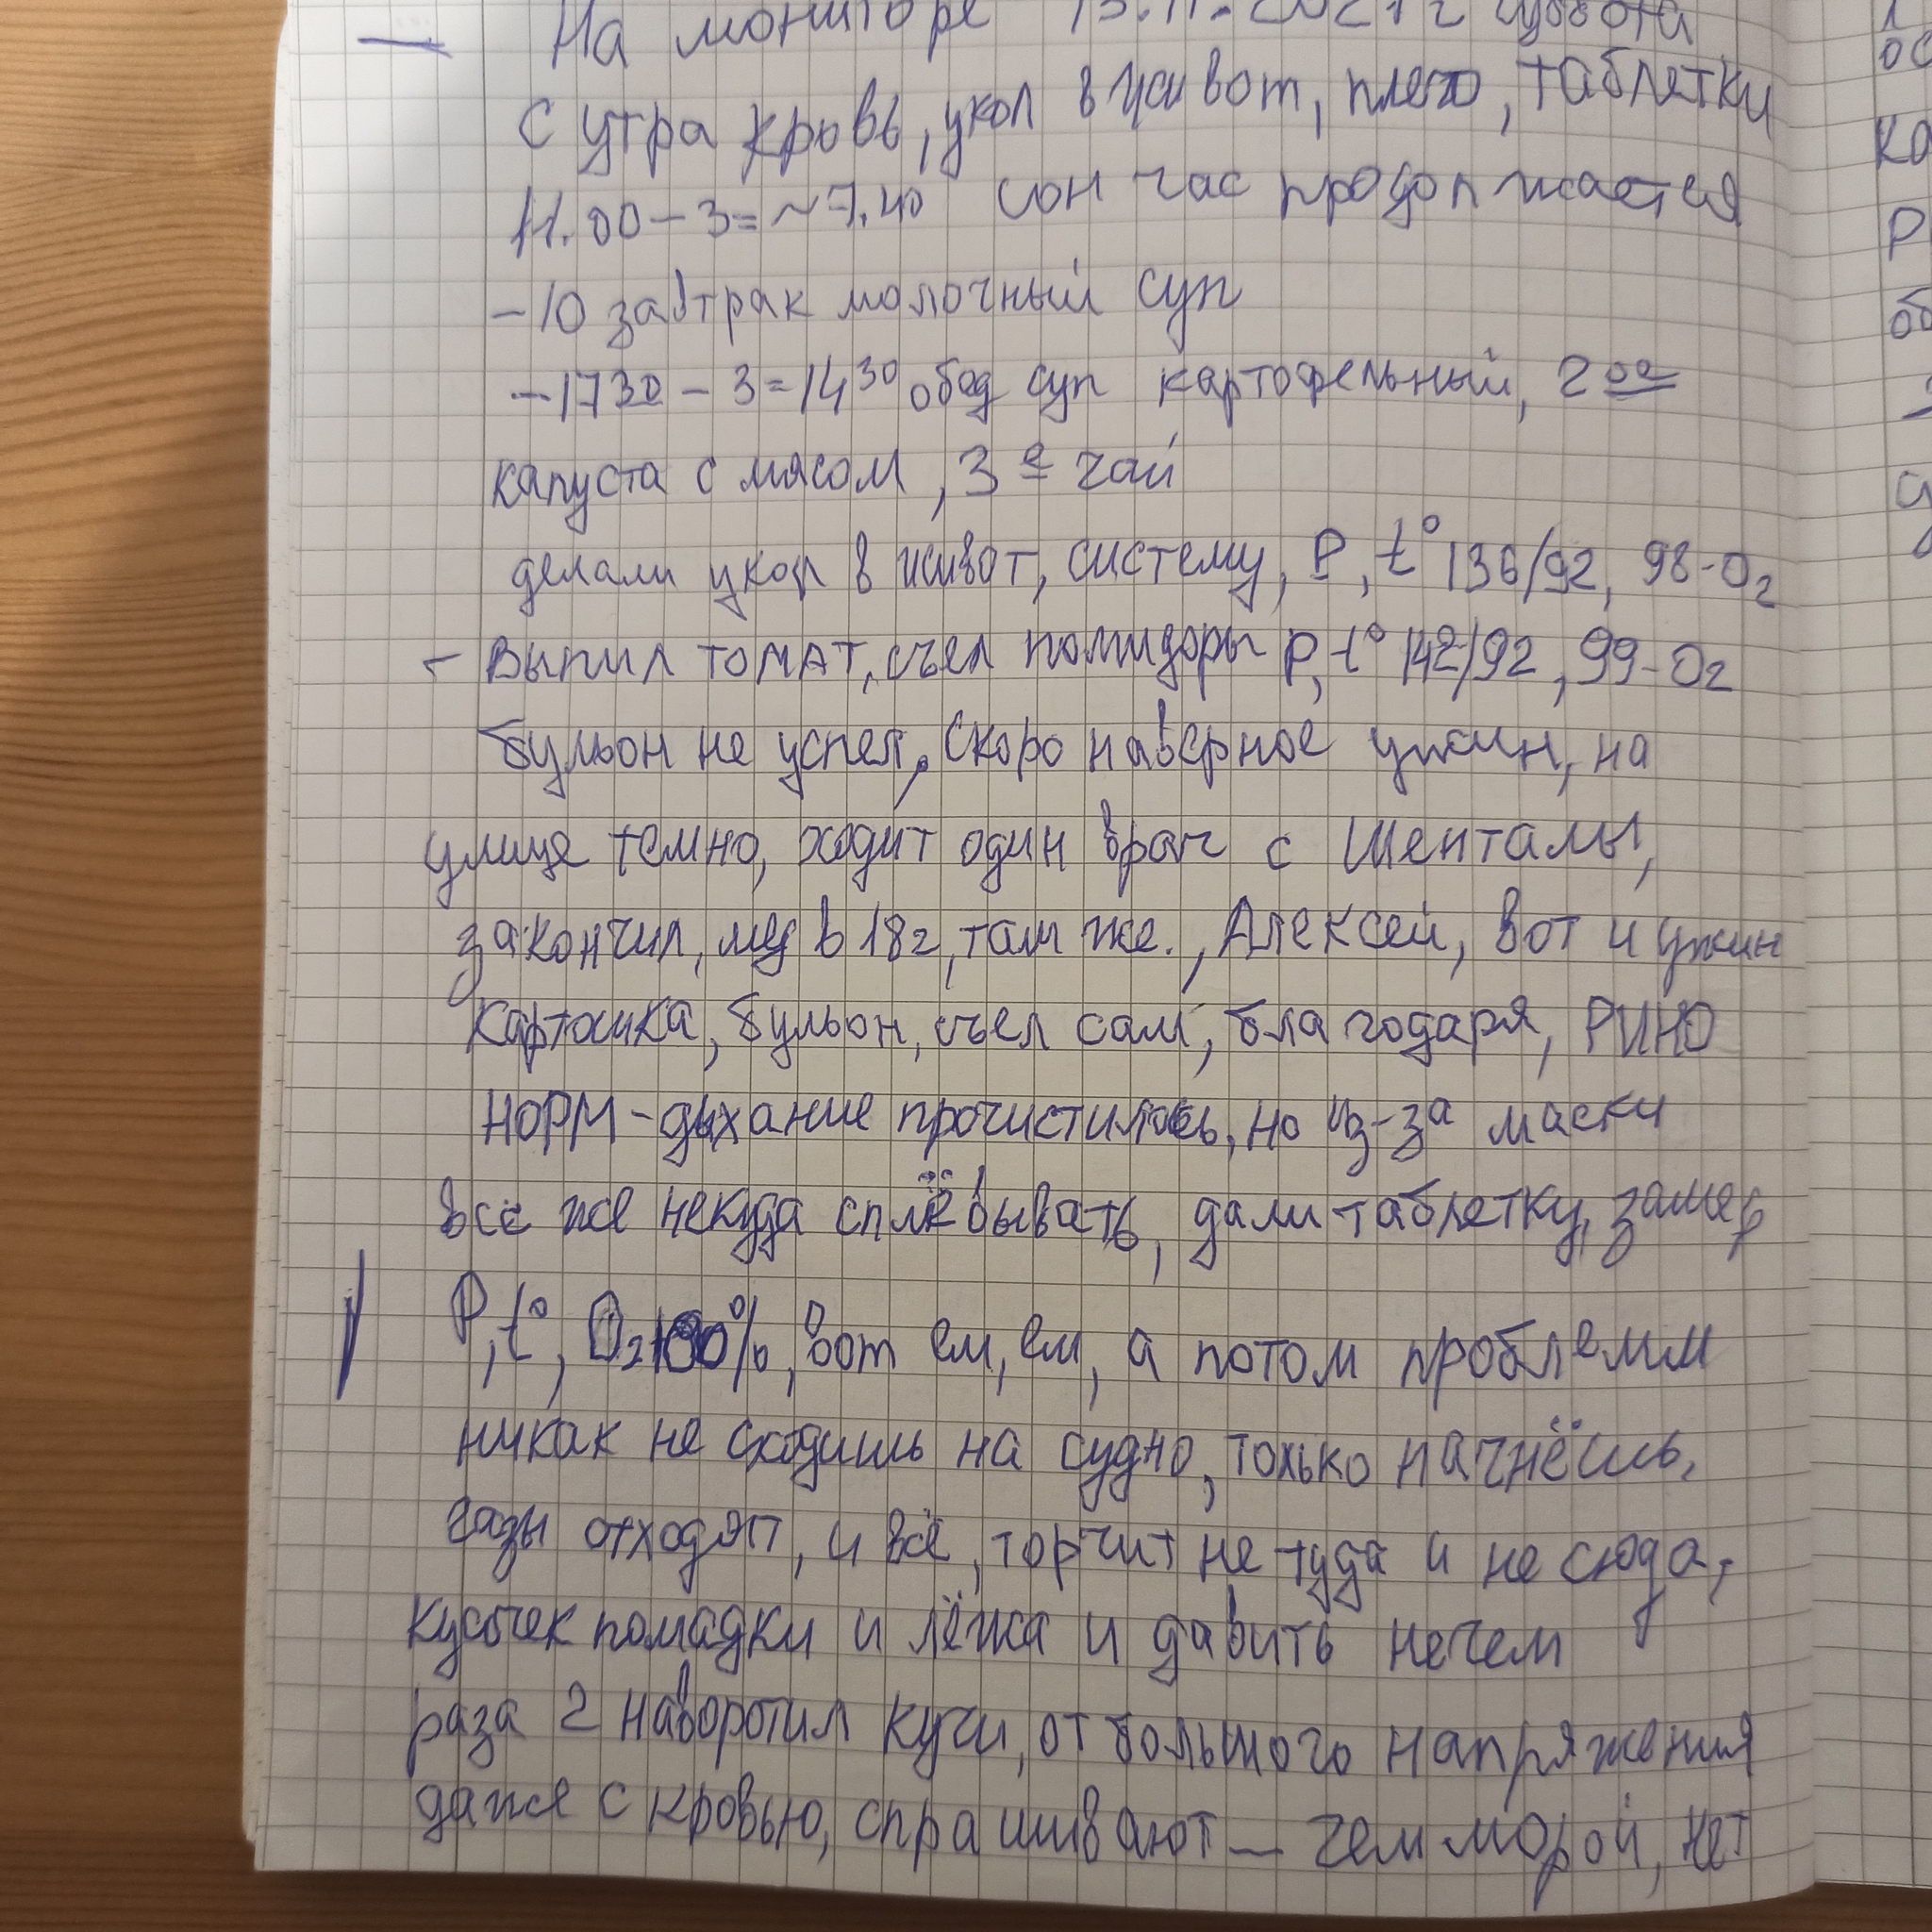 — На мониторе 13.11.2021г суббота
с утра кровь, укол в живот, плечо, таблетки
11.00 – 3 = ~7.40 сон час продолжается
– 10 завтрак молочный суп
– 1730 – 3 = 14 30 обед суп картофельный, 2 ое
капуста с мясом, 3 е чай
делали укол в живот, систему, P, t° 136/92, 98-O2
– Выпил томат, съел помидоры P, t° 142/92, 99-O2
бульон не успел, Скоро наверное ужин, на
улице темно, ходит один врач с Шенталы,
закончил, мед в 18г, там же., Алексей, вот и ужин
картошка, бульон, съел сам, благодаря, РИНО
НОРМ – дыхание прочистилось, но из-за маски
всё же некуда сплёвывать, дали таблетку, замер
P, t°, O2 100%, вот ем, ем, а потом проблемы
никак не сходишь на судно, только начнёшь,
газы отходят, и всё, торчит не туда и не сюда,
кусочек помадки и лёжа и давить нечем
раза 2 наворотил кучи, от большого напряжения
даже с кровью, спрашивают – чем морой, нет